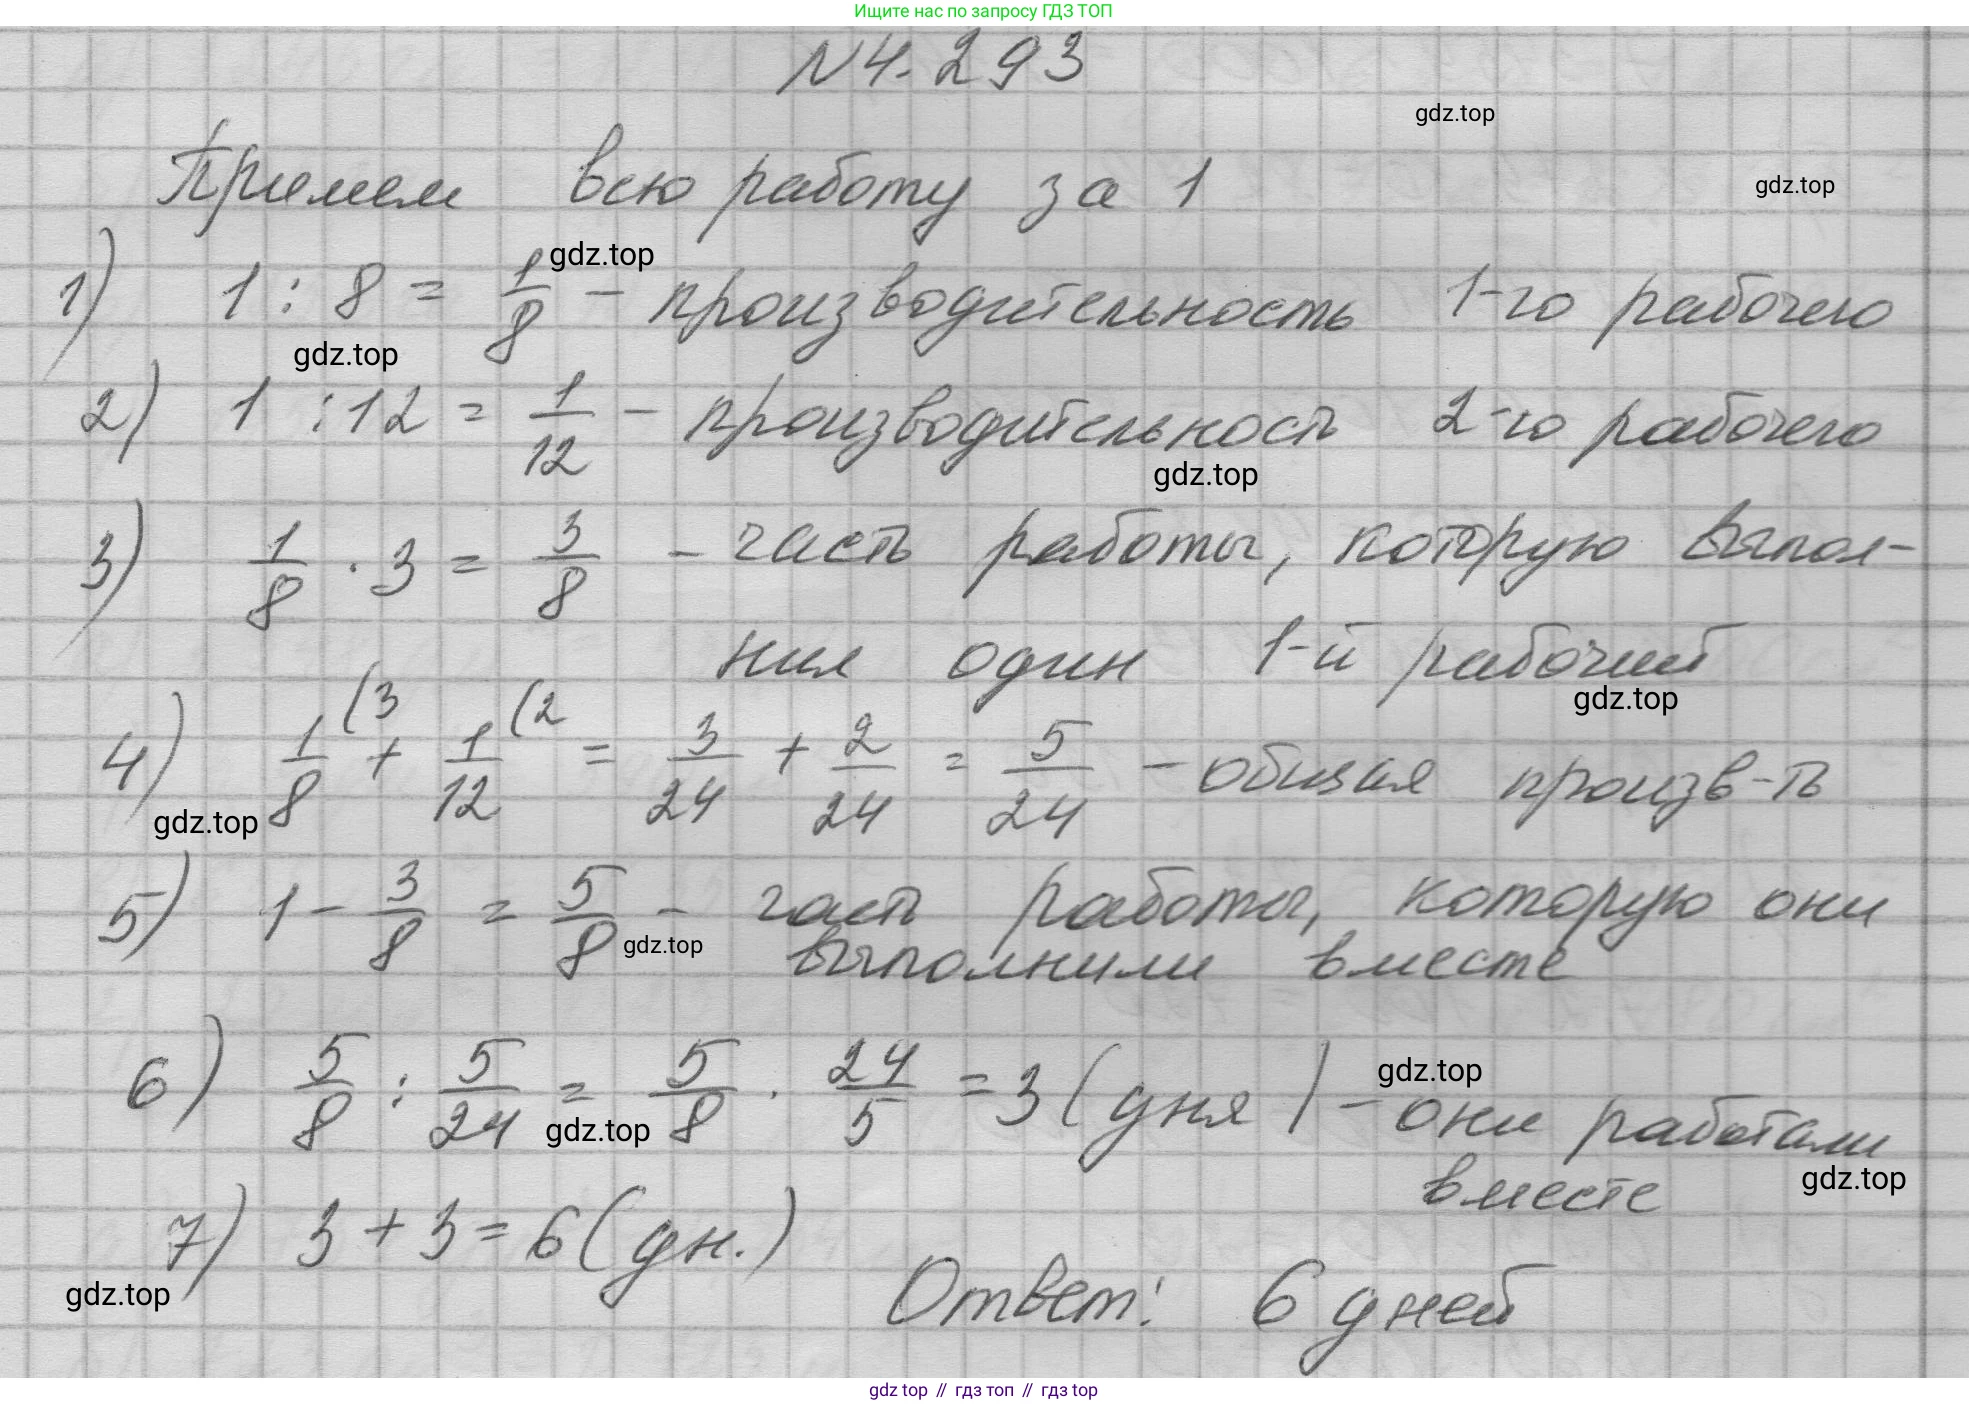 Ищите нас по запросу ГДЗ ТОП
N4.293
gdz.top
Примем всю работу за 1
gdz.top
gdz.top
1) 1 : 8 = 1/8 - производительность 1-го рабочего
gdz.top
2) 1 : 12 = 1/12 - производительность 2-го рабочего
gdz.top
3) 1/8 · 3 = 3/8 - часть работы, которую выпол-
нил один 1-й рабочий
gdz.top
4) 1/8 (3 + 1/12 (2 = 3/24 + 2/24 = 5/24 - общая произв-ть
gdz.top
5) 1 - 3/8 = 5/8 - часть работы, которую они
gdz.top
выполнили вместе
6) 5/8 : 5/24 = 5/8 · 24/5 = 3 (дня) - они работали
gdz.top
gdz.top
вместе
gdz.top
7) 3 + 3 = 6 (дн.)
gdz.top
Ответ: 6 дней
gdz top // гдз топ // гдз top